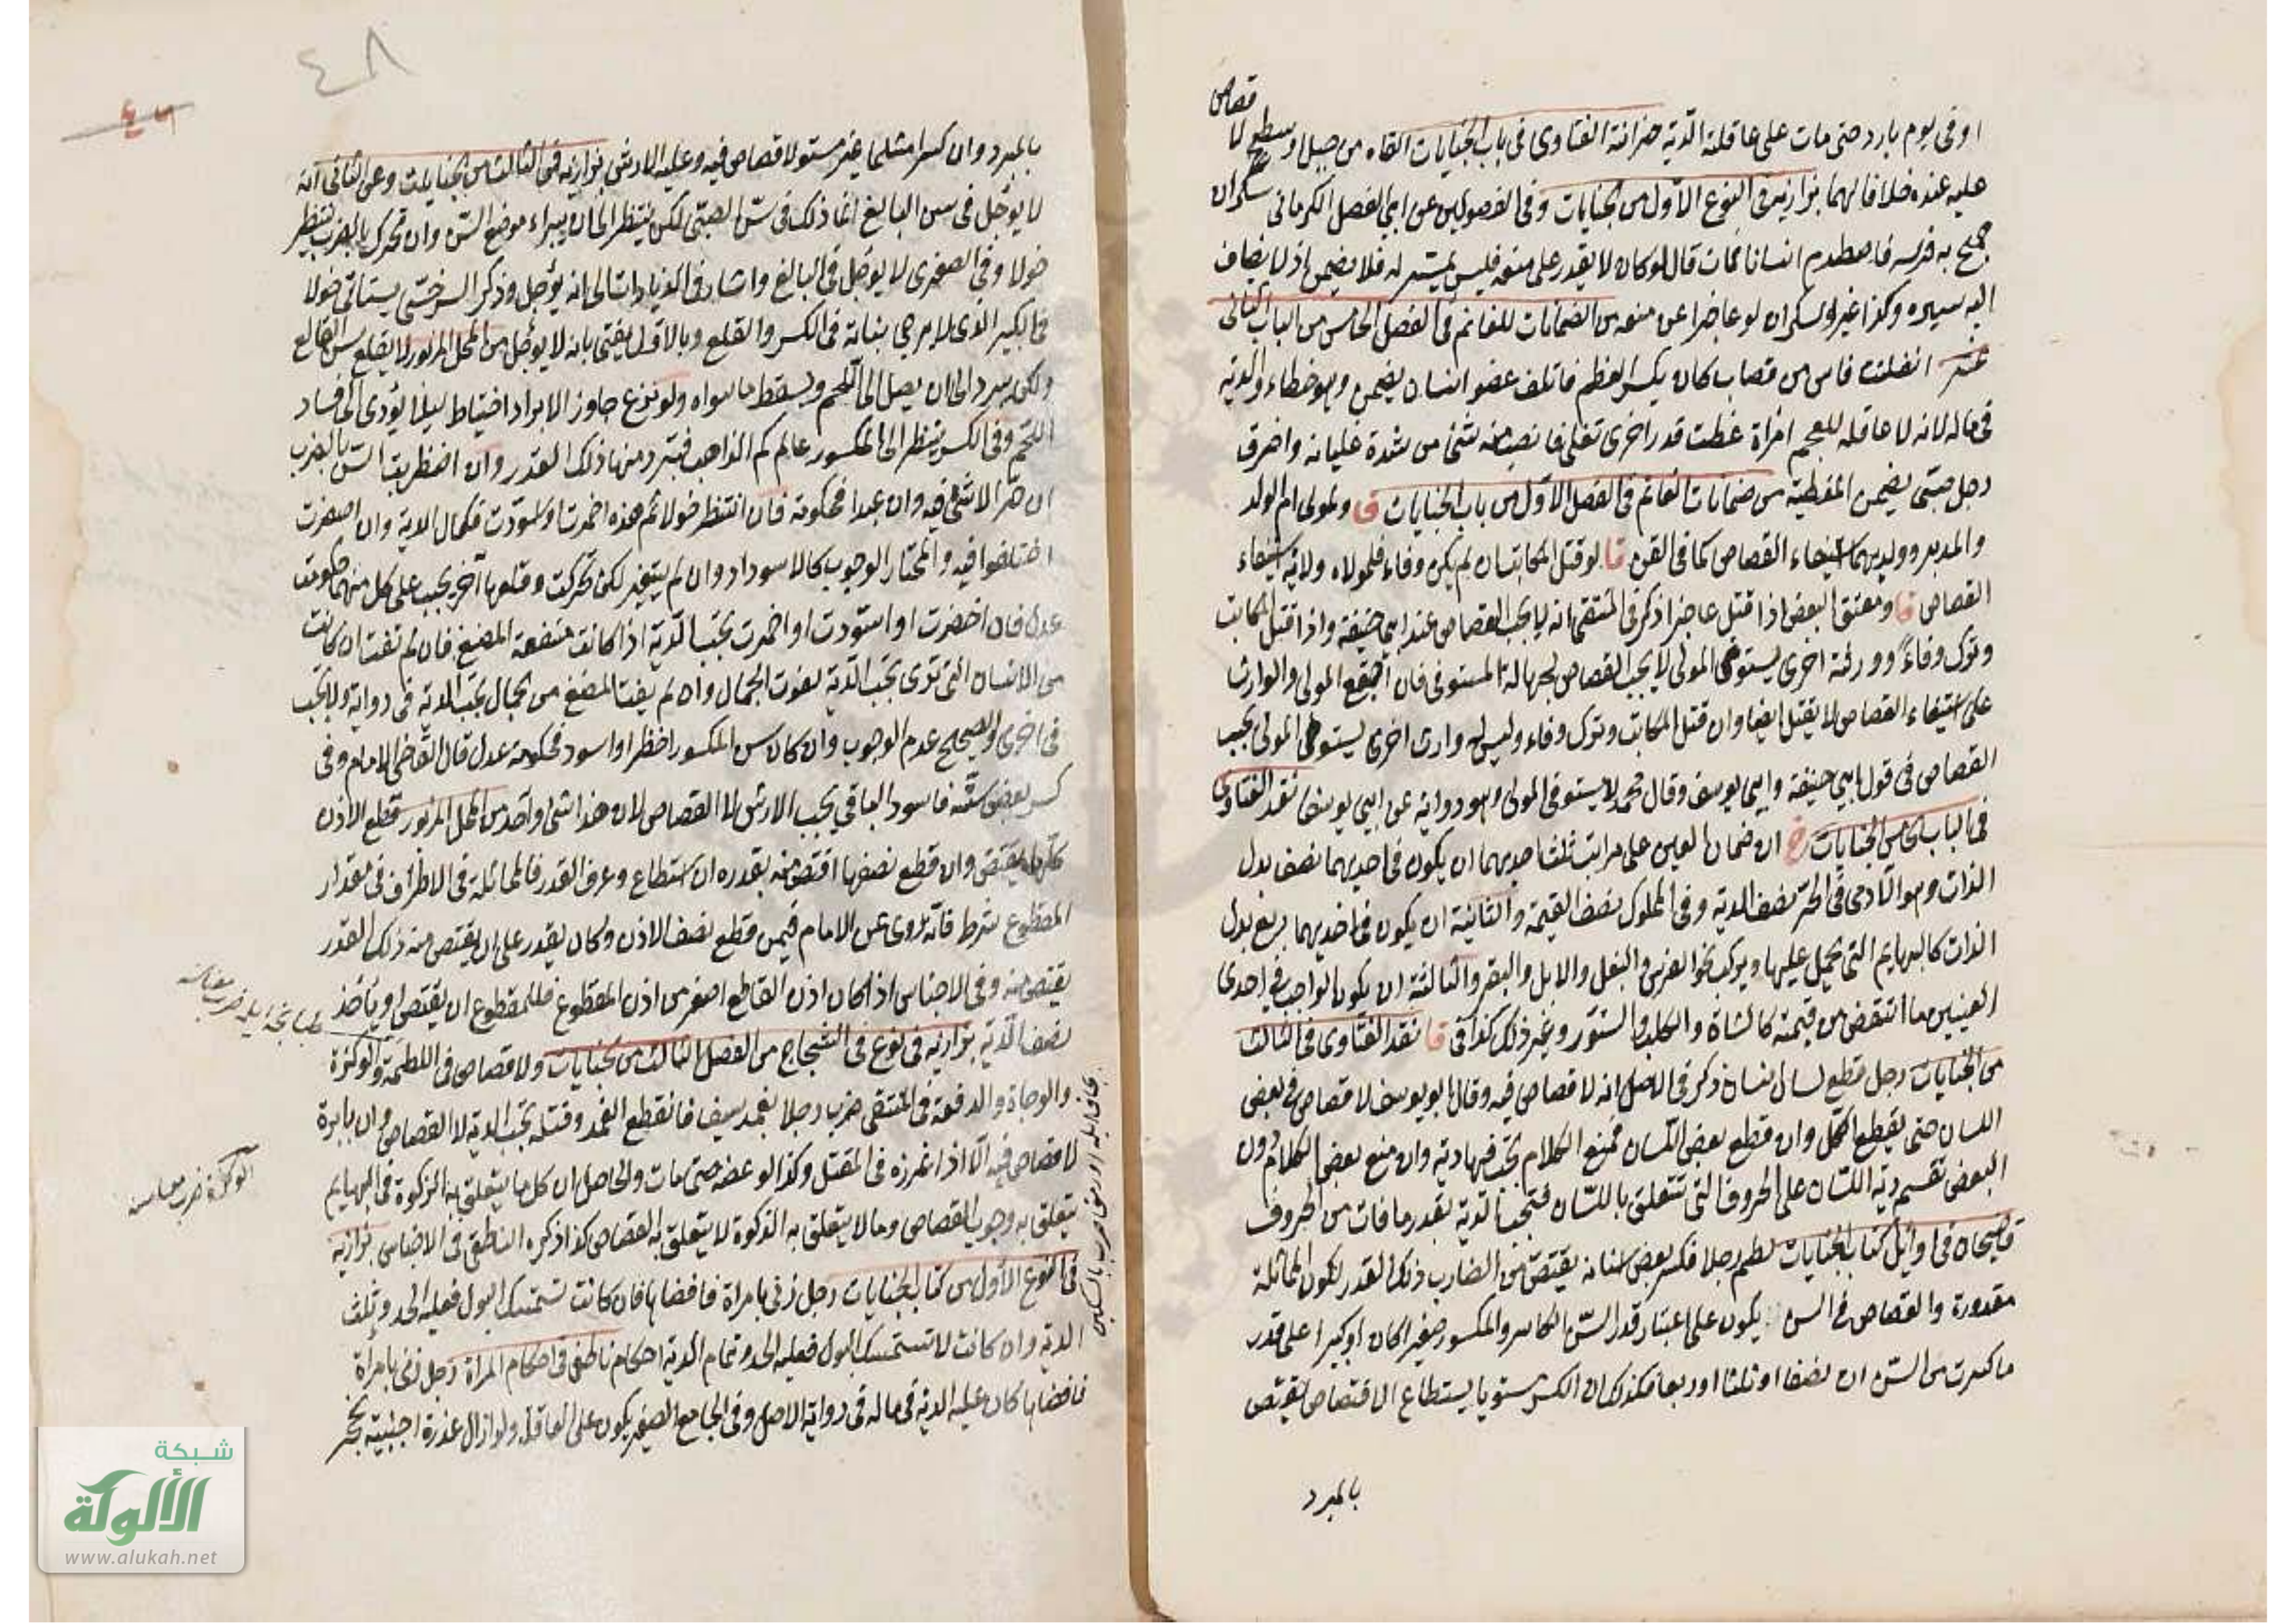 قصاص
او في يوم بارد حتى مات على عاقلته الدية خزانة الفتاوى في باب الجنايات القاه من جبل او سطح لا
عليه عنده خلافا لهما بزازية في النوع الاول من الجنايات وفي الفصولين عن ابي الفضل الكرماني سكران
جمح به فرسه فاصطدم انسانا فمات قال لو كان لا يقدر على منعه فليس بمسير له فلا يضمن اذ لا يضاف
اليه سيره وكذا غير السكران لو عاجزا عن منعه من الضمانات للغانم في الفصل الخامس من الباب الثاني
عشر انفلتت فاس من قصاب كان يكسر العظم فاتلف عضو انسان يضمن وهو خطاء والدية
في ماله لانه لا عاقلة للعجم امراة غطت قدر اخرى تغلي فانصب منه شئ من شدة غليانه واحرق
رجل صبي يضمن المغطية من ضمانات الغانم في الفصل الاول من باب الجنايات ولمولى ام الولد
والمدبر وولديهما استيفاء القصاص كما في القن قا لو قتل المكاتب ان لم يكن وفاء فلمولاه ولاية استيفاء
القصاص قا ومعتق البعض اذا قتل عاجزا ذكر في المنتقى انه لا يجب القصاص عند ابي حنيفة واذا قتل المكاتب
وترك وفاء وورثة اخرى يستوفى المولى لا يجب القصاص لجهالة المستوفى فان اجتمع المولى والوارث
على استيفاء القصاص لا يقتل ايضا وان قتل المكاتب وترك وفاء وليس له وارث اخرى يستوفى المولى يجب
القصاص في قول ابي حنيفة وابي يوسف وقال محمد لا يستوفى المولى وهو رواية عن ابي يوسف نقد الفتاوى
في الباب الخامس الجنايات ان ضمان العين على مراتب ثلث احديهما ان يكون في احديهما نصف بدل
الذات وهو الآدمي في الحر نصف الدية وفي المملوك نصف القيمة والثانية ان يكون في احديهما ربع بدل
الذات كالبهايم التي يحمل عليها ويركب نحو الفرس والبغل والابل والبقر والثالثة ان يكون الواجب في احدى
العينين ما انتقض من قيمته كالشاة والكلب والسنور وغير ذلك كذا في قا نقد الفتاوى في الثالث
من الجنايات رجل قطع لسان انسان ذكر في الاصل انه لا قصاص فيه وقال ابو يوسف لا قصاص في بعض
اللسان حتى يقطع الكل وان قطع بعض اللسان فمنع الكلام يجب فيها دية وان منع بعض الكلام دون
البعض تقسم دية اللسان على الحروف التي تتعلق باللسان فتجب الدية بقدر ما فات من الحروف
قاضيخان في اوائل كتاب الجنايات لطم رجلا فكسر بعض اسنانه يقتص من الضارب ذلك القدر لكون المماثلة
مقدورة والقصاص في السن يكون على اعتبار قدر السن الكاسر والمكسور صغيرا كان او كبيرا على قدر
ما كسرت من السن ان نصفا او ثلثا او ربعا فكذلك ان الكسر مستويا يستطاع الاقتصاص يقتص
بالمبرد
٤٨
٤٦
بالمبرد وان كسرا مثلما غير مستو لا قصاص فيه وعليه الارش بزازية في الثالث من الجنايات وعن الثاني انه
لا يوجل في سن البالغ انما ذلك في سن الصبي لكن ينتظر الى ان يبراء موضع السن وان تحرك بالضرب ينتظر
حولا وفي الصغرى لا يوجل في البالغ واشار في الزيادات الى انه يؤجل وذكر السرخسي يستاني حولا
في الكبير الذي لا يرجى نباته في الكسر والقلع وبالاول يفتى بانه لا يؤجل من المحل المزبور لا يقلع سن القالع
ولكن يبرد الى ان يصل الى اللحم ويسقط ما سواه ولو نزع جاوز الابراد احتياط ليلا يؤدي الى فساد
اللحم وفي الكسر ينتظر الى المكسور عالم كم الذاهب فيبرد منها ذلك القدر وان اضطربت السن بالضرب
ان حرا لا شئ فيه وان عبدا فحكومة فان انتظر حولا ثم هذه احمرت او اسودت فكمال الدية وان اصفرت
اختلفوا فيه والمختار الوجوب كالاسوداد وان لم يتغير لكن تحركت وقلعها آخر يجب على كل منهما حكومة
عدل فان اخضرت او اسودت او احمرت يجب الدية اذا كانت منفعة المضغ فان لم تفت ان كانت
من الاسنان التي ترى يجب الدية لفوت الجمال وان لم يفت المضغ من الجمال يجب الدية في رواية ولا يجب
في اخرى والصحيح عدم الوجوب وان كان سن المكسور اخظر او اسود فحكومة عدل قال القاضي الامام وفي
كسر بعض سنه فاسود الباقي يجب الارش لا القصاص لان هذا شئ واحد من المحل المزبور قطع الاذن
كلها يقتص وان قطع نصفها اقتص منه بقدره ان استطاع وعرف القدر فالمماثلة في الاطراف في مقدار
المقطوع شرط فانه روى عن الامام فيمن قطع نصف الاذن وكان يقدر على ان يقتص منه ذلك القدر
يقتص منه وفي الاجناس اذا كان اذن القاطع اصغر من اذن المقطوع فللمقطوع ان يقتص او يأخذ
نصف الدية بزازية في نوع في الشجاج من الفصل الثالث من الجنايات ولا قصاص في اللطمة والوكزة
والوجاة والدقة في المنتقى ضرب رجلا بغمد سيف فانقطع الغمد وقتله يجب الدية لا القصاص وان بابرة
لا قصاص فيه الا اذا غرزه في المقتل وكذا لو عضه حتى مات والحاصل ان كل ما يتعلق به الزكوة في البهايم
يتعلق به وجوب القصاص وما لا يتعلق به الذكوة لا يتعلق به القصاص كذا ذكره الناطفي في الاجناس بزازية
في النوع الاول من كتاب الجنايات رجل زنى بامراة فافضاها فان كانت تستمسك البول فعليه الحد وثلث
الدية وان كانت لا تستمسك البول فعليه الحد وتمام الدية احكام ناطفي في احكام المراة رجل زنى بامراة
فافضاها كان عليه الدية في ماله في رواية الاصل وفي الجامع الصغير يكون على العاقلة ولو ازال عذرة اجنبية بحجر
شبكة
الألوكة
www.alukah.net